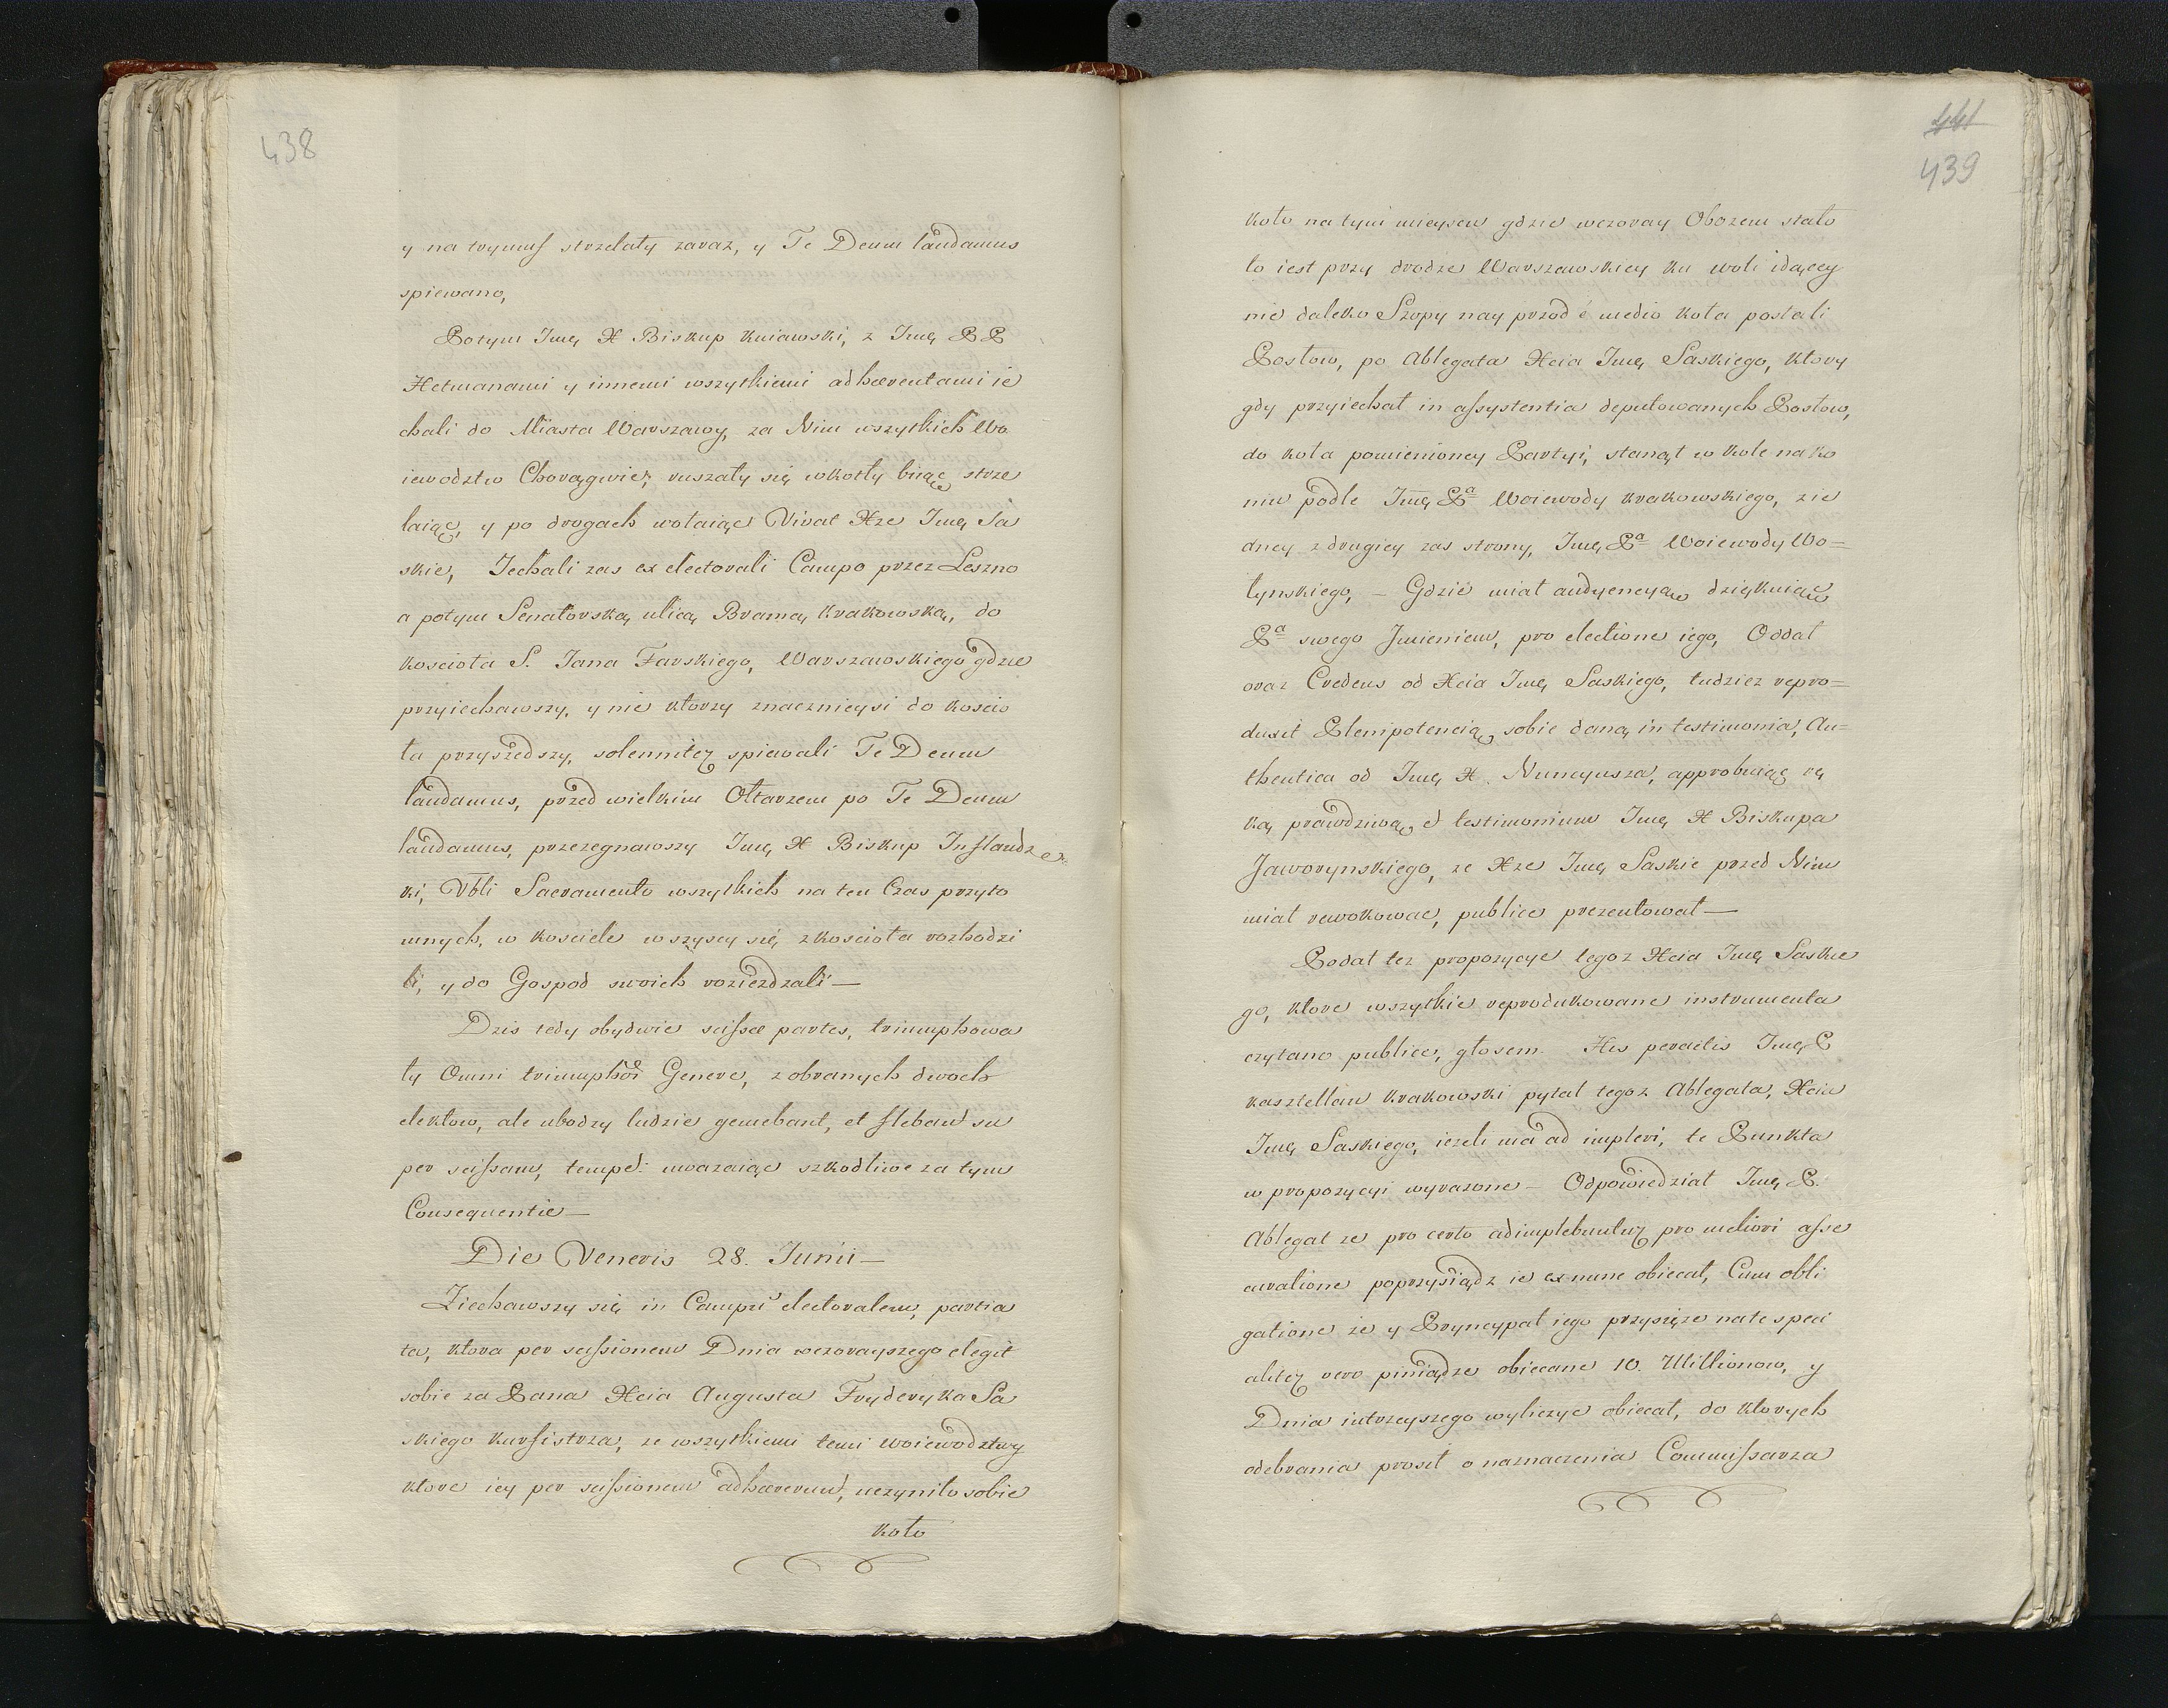 438
y na tryumf strzelały zaraz, y Te Deum laudamus
spiewano,
Potym Jmę X Biskup kuiawski, z Jmę PP
Hetmanami y innemi wszytkiemi adhærentami ie
chali do Miasta Warszawy, za Nim wszytkich Wo
iewodztw Chorągwie, ruszały się w kotły biiąc strze
laiąc, y po drogach wołaiąc Vivat Xże Jmę Sa
skie, Jechali zas ex electorali Campo przez Leszno
a potym Senatorską ulicą Bramą krakowską, do
kosciola S. Jana Farskiego, Warszawskiego gdzie
przyiechawszy, y nie ktorzy znacznieysi do koscio
ła przyszedszy, solenniter spiewali Te Deum
laudamus, przed wielkim Ołtarzem po Te Deum
laudamus, przezegnawszy Jmę X Biskup Inflandz
ki, Vbli Sacramento wszytkich na ten Czas przyto
mnych, w kosciele wszyscy się z kosciola rozhodzi
li, y do Gospod swoich roziezdzali —
Dzis tedy obydwie scissæ partes, triumphowa
ły Omni triumphi Genere, z obranych dwoch
elektow, ale ubodzy ludzie gemebant, et flebant su
per scissam, uwazaiąc szkodliwe za tym
Consequentie —
Die Veneris 28. Junii —
Ziechawszy się in Campū electoralem, partia
ta, ktora per scissionem Dnia wczorayszego elegit
sobie za Pana Xcia Augusta Fryderyka Sa
skiego kurfistrza, ze wszytkiemi temi woiewodztwy
ktore iey per scissionem adhærerunt, uczyniło sobie
koło
441
439
koło na tym mieyscu gdzie wczoray Obozem stało
to iest przy drodze Warszawskiey ku woli idącey
nie daleko Szopy nay przod é medio koła posłali
Posłow, po Ablegata Xcia Jmę Saskiego, ktory
gdy przyiechał in assystentia deputowanych Posłow,
do koła pomienioney Partyi, stanął w kole na ko
niu podle Jmę Pa Woiewody krakowskiego, z ie
dney z drugiey zas strony, Jmę Pa Woiewody Wo=
łynskiego, — Gdzie miał audyencyą dziękuiąc
Pa swego Jmieniem, pro electione iego, Oddał
oraz Credens od Xcia Jmę Saskiego, tudziez repro=
duxit Plenipotencią, sobie daną in testimonia, Au=
thentica od Jmę X. Nuncyusza, approbuiąc rę
ką prawdziwą, et testimonium Jmę X Biskupa
Jaworynskiego, ze Xze Jmę Saskie przed Nim
miał rewokowac, publice prezentował —
Podał tez propozycye tegoz Xcia Jmę Saskie
go, ktore wszytkie reprodukowane instrumenta
czytano publice, głosem. His peractis Jmę P
kasztellan krakowski pytał tegoz Ablegata, Xcia
Jmę Saskiego, iezeli ma ad impleri, te Punkta
w propozycyi wyrazone — Odpowiedział Jmę P.
Ablegat ze pro certo adimplebuntur pro meliori asse
curatione poprzysiądz ie ex nunc obiecał, Cum obli
gatione ze y Pryncypał iego przysięze na te speci
aliter vero piniądze obiecane 10. Millionow, y
Dnia iutrzeyszego wyliczyc obiecał, do ktorych
odebrania prosił o naznaczenia Commissarza